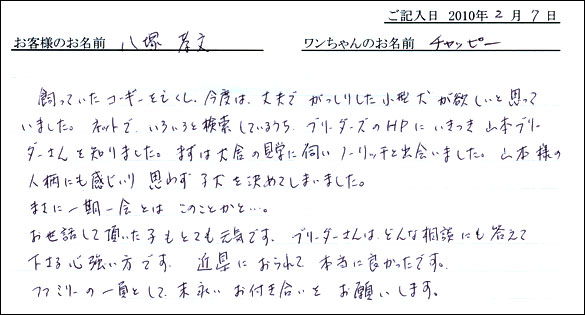 ご記入日 2010年 2月 7日
お客様のお名前 八塚 孝文 ワンちゃんのお名前 チャッピー
飼っていたコーギーを亡くし、今度は、丈夫で がっしりした小型犬が欲しいと思って
いました。ネットで、いろいろと検索しているうち、ブリーダーズのHPにいきつき 山本ブリー
ダーさんを知りました。まずは犬舎の見学に伺い ノーリッチと出会いました。山本様の
人柄にも感じいり 思わず子犬を決めてしまいました。
まさに一期一会とは このことかと…。
お世話して頂いた子もとても元気です。ブリーダーさんは、どんな相談にも答えて
下さる心強い方です。 近県におられて 本当に良かったです。
ファミリーの一員として、末永いお付き合いを お願いします。